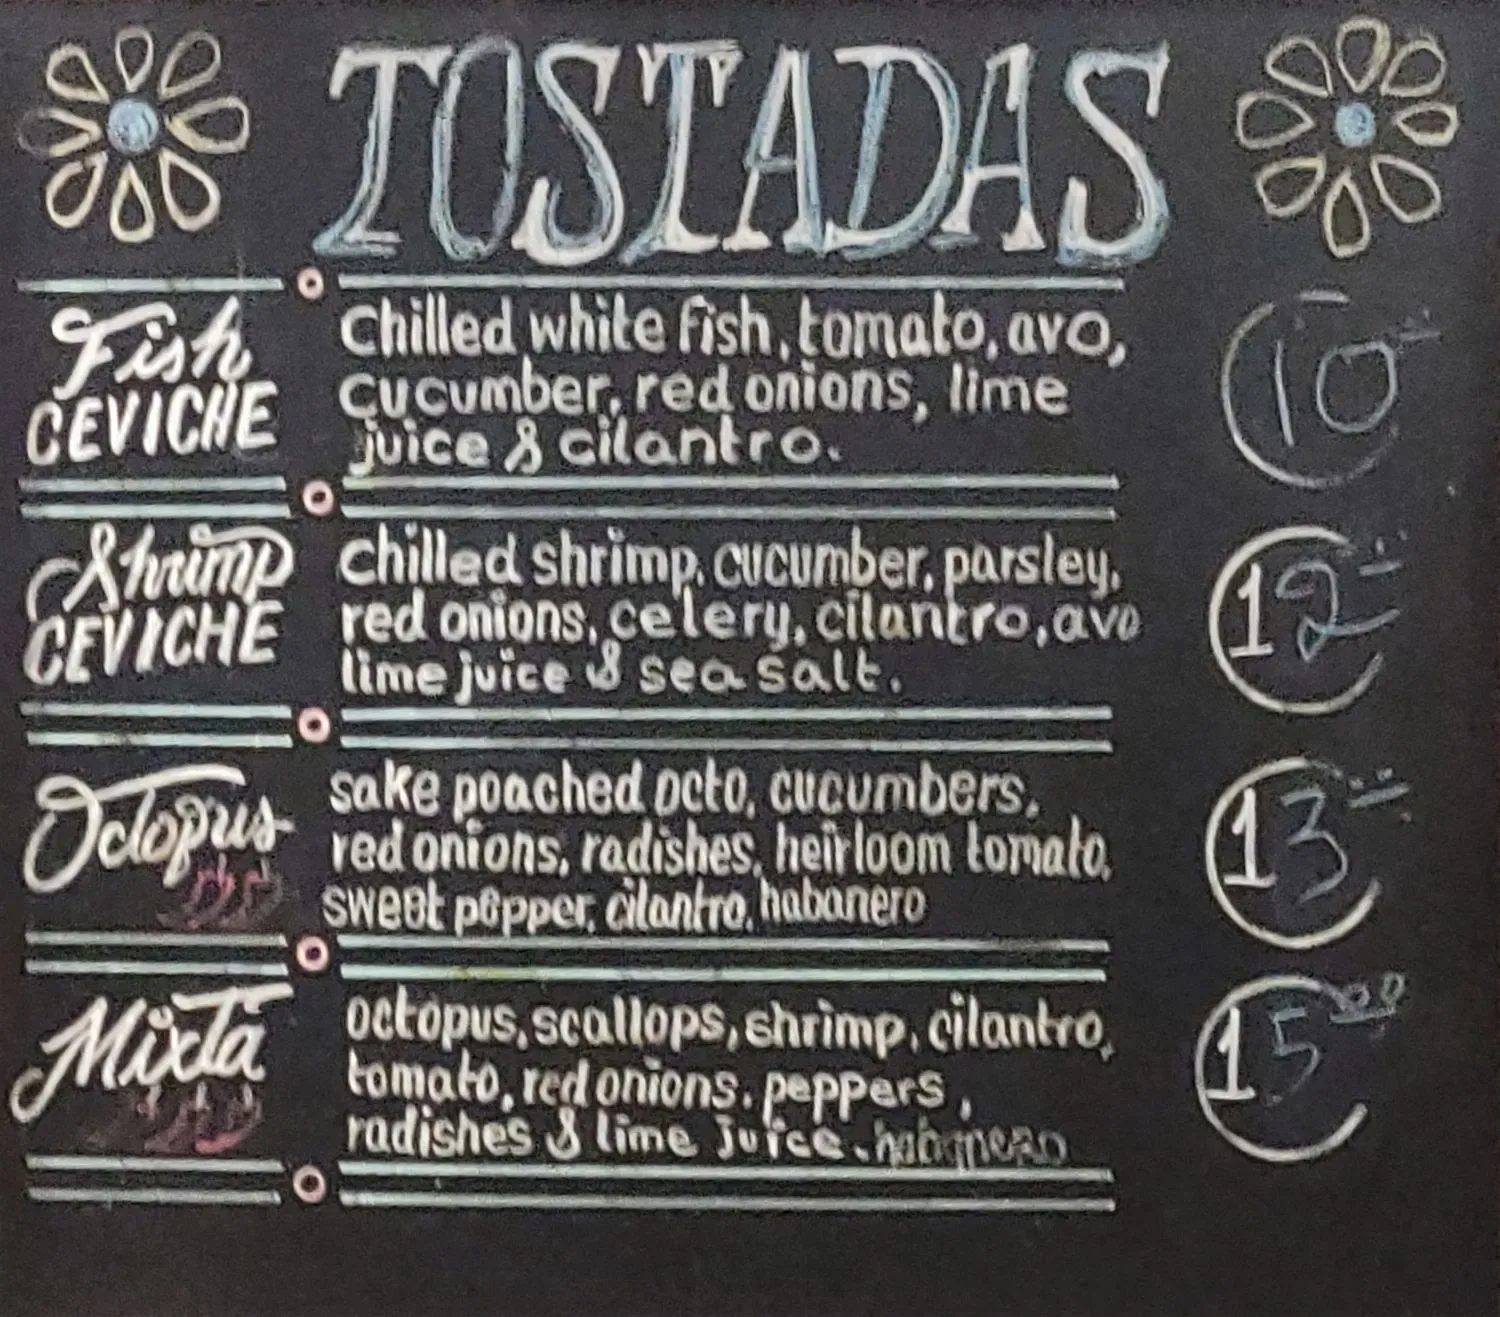 TOSTADAS
Fish
CEVICHE
Chilled white fish, tomato, avo,
cucumber, red onions, lime
juice & cilantro.
10
Shrimp
CEVICHE
Chilled shrimp, cucumber, parsley,
red onions, celery, cilantro, avo
lime juice & sea salt.
12
Octopus
sake poached octo, cucumbers,
red onions, radishes, heirloom tomato,
sweet pepper, cilantro, habanero
13
Mixta
octopus, scallops, shrimp, cilantro,
tomato, red onions, peppers,
radishes & lime juice. habanero
15.00